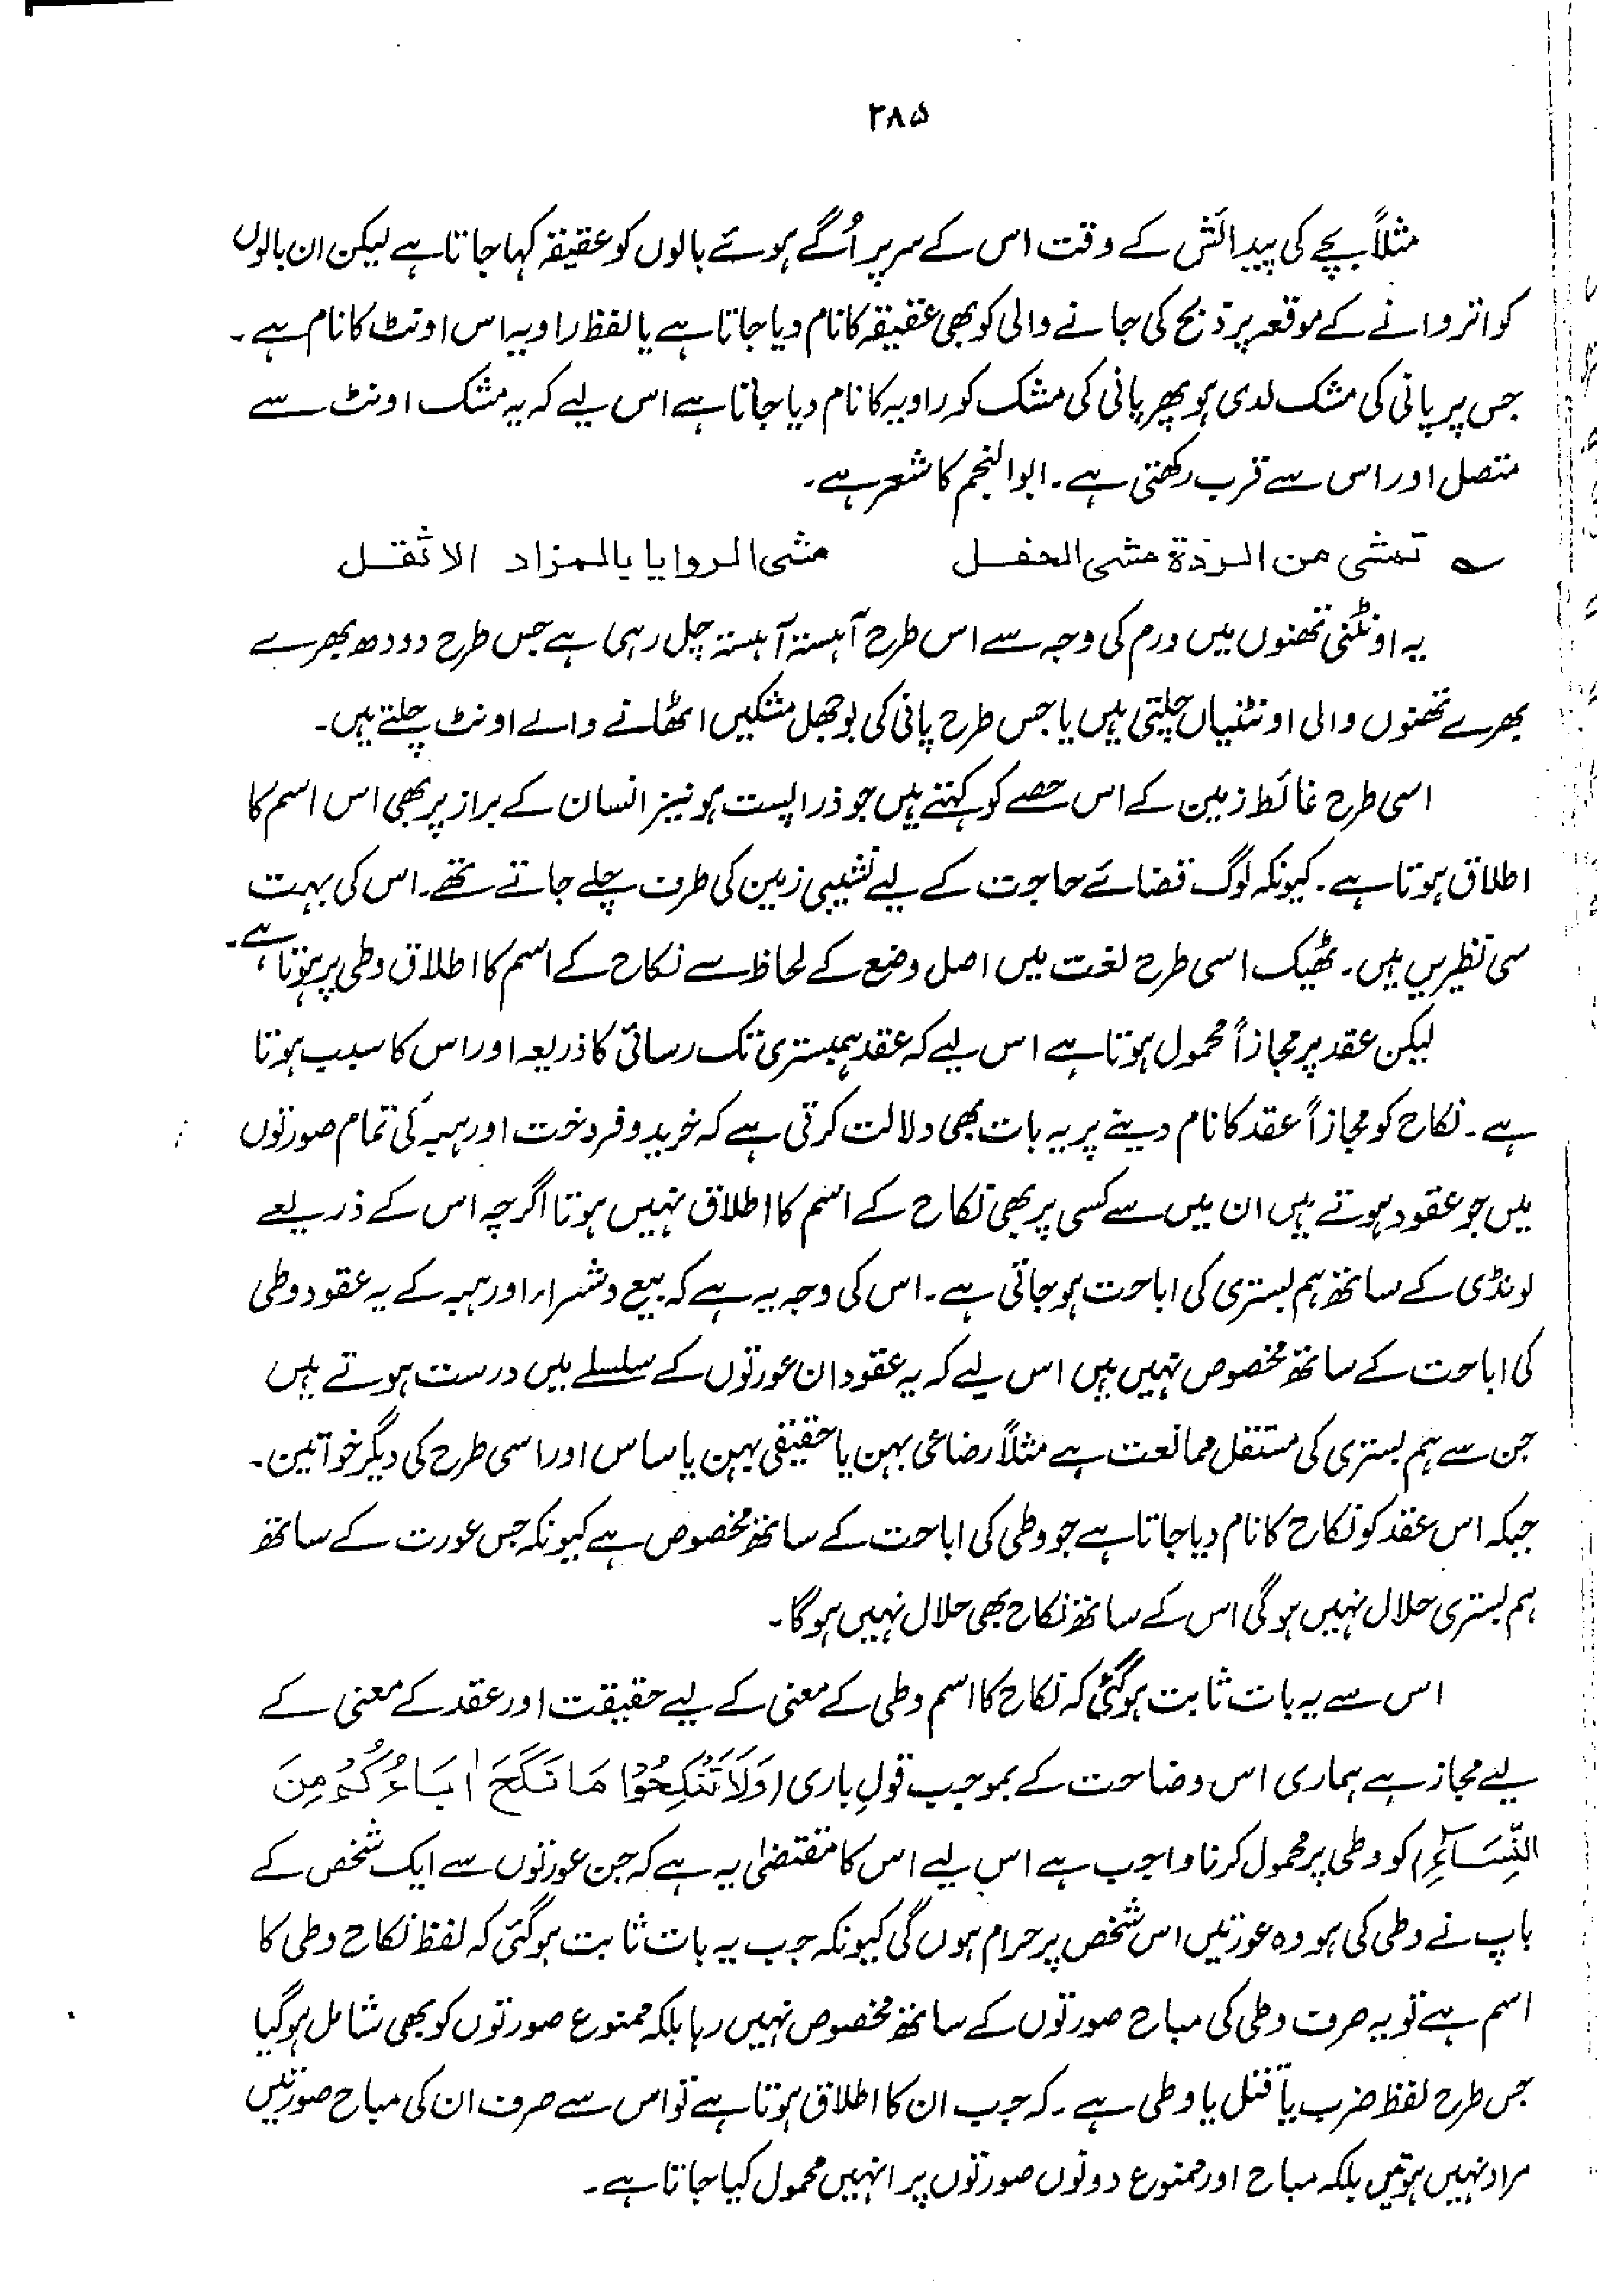 ۲۸۵
مثلاً بچے کی پیدائش کے وقت اس کے سر پر اُگے ہوئے بالوں کو عقیقہ کہا جاتا ہے لیکن ان بالوں
کو اتروانے کے موقعہ پر ذبح کی جانے والی کو بھی عقیقہ کا نام دیا جاتا ہے یا لفظ راویہ اس اونٹ کا نام ہے۔
جس پر پانی کی مشک لدی ہو پھر پانی کی مشک کو راویہ کا نام دیا جاتا ہے اس لیے کہ یہ مشک اونٹ سے
متصل اور اس سے قرب رکھتی ہے۔ ابوالنجم کا شعر ہے۔
؎ تمشی من الردة مشی الحفل مشی الروایا بالمزاد الاثقل
یہ اونٹنی تھنوں میں ورم کی وجہ سے اس طرح آہستہ آہستہ چل رہی ہے جس طرح دودھ بھرے
بھرے تھنوں والی اونٹنیاں چلتی ہیں یا جس طرح پانی کی بوجھل مشکیں اٹھانے والے اونٹ چلتے ہیں۔
اسی طرح غائط زمین کے اس حصے کو کہتے ہیں جو ذرا پست ہو نیز انسان کے براز پر بھی اس اسم کا
اطلاق ہوتا ہے۔ کیونکہ لوگ قضائے حاجت کے لیے نشیبی زمین کی طرف چلے جاتے تھے۔ اس کی بہت
سی نظریں ہیں۔ ٹھیک اسی طرح لغت میں اصل وضع کے لحاظ سے نکاح کے اسم کا اطلاق وطی پر ہوتا ہے۔
لیکن عقد پر مجازاً محمول ہوتا ہے اس لیے کہ عقد ہمبستری تک رسائی کا ذریعہ اور اس کا سبب ہوتا
ہے۔ نکاح کو مجازاً عقد کا نام دینے پر یہ بات بھی دلالت کرتی ہے کہ خرید و فروخت اور ہبہ کی تمام صورتوں
میں جو عقود ہوتے ہیں ان میں سے کسی پر بھی نکاح کے اسم کا اطلاق نہیں ہوتا اگرچہ اس کے ذریعے
لونڈی کے ساتھ ہم بستری کی اباحت ہو جاتی ہے۔ اس کی وجہ یہ ہے کہ بیع و شراء اور ہبہ کے یہ عقود وطی
کی اباحت کے ساتھ مخصوص نہیں ہیں اس لیے کہ یہ عقود ان عورتوں کے سلسلے میں درست ہوتے ہیں
جن سے ہم بستری کی مستقل ممانعت ہے مثلاً رضاعی بہن یا حقیقی بہن یا ساس اور اسی طرح کی دیگر خواتین۔
جبکہ اس عقد کو نکاح کا نام دیا جاتا ہے جو وطی کی اباحت کے ساتھ مخصوص ہے کیونکہ جس عورت کے ساتھ
ہم بستری حلال نہیں ہو گی اس کے ساتھ نکاح بھی حلال نہیں ہوگا۔
اس سے یہ بات ثابت ہو گئی کہ نکاح کا اسم وطی کے معنی کے لیے حقیقت اور عقد کے معنی کے
لیے مجاز ہے ہماری اس وضاحت کے بموجب قولِ باری (وَلَا تَنْكِحُوْا مَا نَكَحَ اٰبَاءُكُمْ مِنَ
النِّسَآءِ) کو وطی پر محمول کرنا واجب ہے اس لیے اس کا مقتضٰی یہ ہے کہ جن عورتوں سے ایک شخص کے
باپ نے وطی کی ہو وہ عورتیں اس شخص پر حرام ہوں گی کیونکہ جب یہ بات ثابت ہو گئی کہ لفظ نکاح وطی کا
اسم ہے تو یہ صرف وطی کی مباح صورتوں کے ساتھ مخصوص نہیں رہا بلکہ ممنوع صورتوں کو بھی شامل ہو گیا
جس طرح لفظ ضرب یا قتل یا وطی ہے۔ کہ جب ان کا اطلاق ہوتا ہے تو اس سے صرف ان کی مباح صورتیں
مراد نہیں ہوتیں بلکہ مباح اور ممنوع دونوں صورتوں پر انہیں محمول کیا جاتا ہے۔